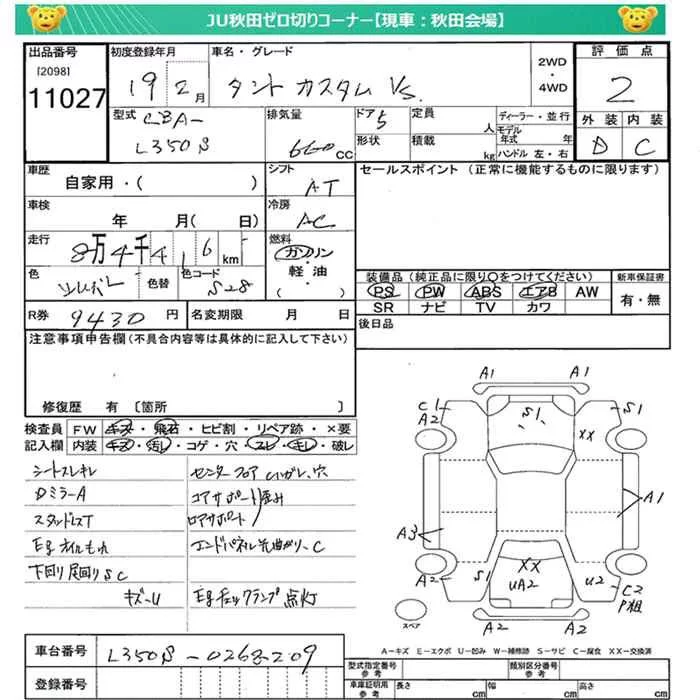 JU秋田ゼロ切りコーナー【現車：秋田会場】
出品番号
[2098]
11027
初度登録年月
19 2月
車名・グレード
タント カスタム Vs.
2WD
・
4WD
評価点
2
外装 内装
D C
型式
CBA-
L350S
排気量
660 CC
ドア 5
形状
定員 人
積載 kg
ディーラー・並行
モデル年式 年
ハンドル 左・右
車歴
自家用・( )
シフト
AT
セールスポイント (正常に機能するものに限ります)
車検
年 月( 日)
冷房
AC
走行
8万4千416km
燃料
ガソリン
・
軽油
・
( )
色
シルバー
色替
色コード
S28
装備品 (純正品に限り○をつけてください)
PS PW ABS エアB AW
SR ナビ TV カワ
新車保証書
有・無
R券 9430円
名変期限 月 日
後日品
注意事項申告欄 (不具合内容等は具体的に記入して下さい)
修復歴 有 〔箇所 〕
検査員
記入欄
FW キズ・飛石・ヒビ割・リペア跡・×要
内装 キズ・汚レ・コゲ・穴・スレ・キレ・破レ
シートスレキレ
DミラーA
スタッドレスT
Egオイルもれ
下回り足回りSC
キズ-U
センターフロア
コアサポート歪み
ロアサポート
エンドパネル先曲がり-C
Egチェックランプ点灯
A1 A1
C1
A2
S1
S1
XX
A1
A3
A2
S1
XX
UA2
U2
C2
P粗
A2 A2
スペア
A-キズ E-エクボ U-凹み W-補修跡 S-サビ C-腐食 XX-交換済
車台番号
L350S-0268209
登録番号
型式指定番号
参考
類別区分番号
参考
車庫証明用
参考
長さ cm
幅 cm
高さ cm